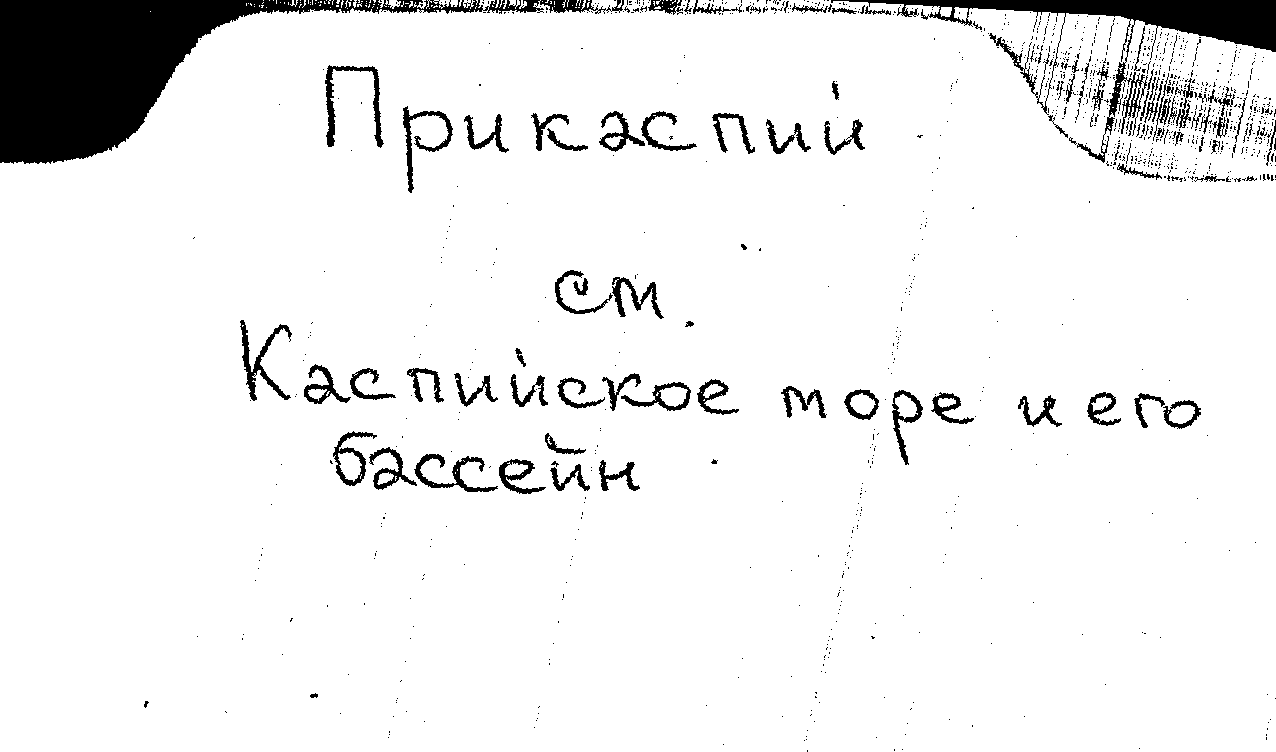 Прикаспий
см.
Каспийское море и его
бассейн